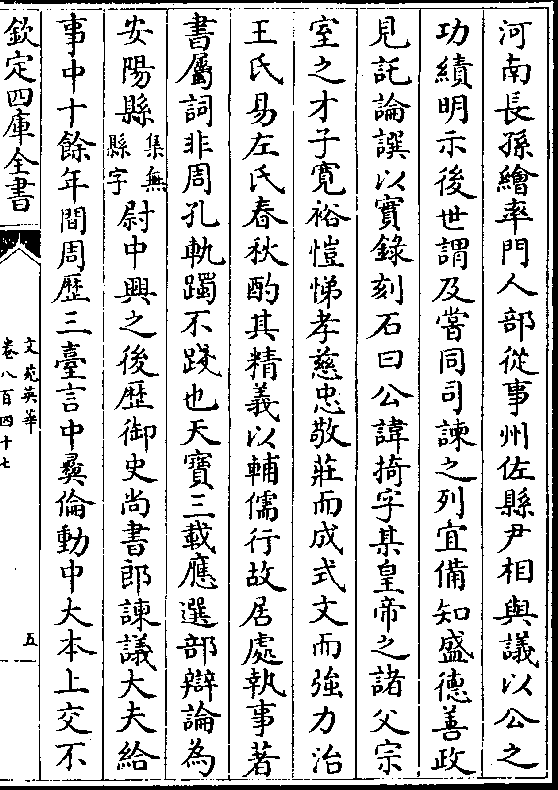 河南長孫繪率門人部從事州佐縣尹相與議以公之
功績明示後世謂及嘗同司諫之列宜備知盛德善政
見託論譔以實錄刻石曰公諱掎字某皇帝之諸父宗
室之才子寛裕愷悌孝慈忠敬莊而成式文而強力治
王氏易左氏春秋酌其精義以輔儒行故居處執事著
書屬詞非周孔軌躅不踐也天寶三載應選部辯論為
安陽縣集無縣字尉中興之後歴御史尚書郎諫議大夫給
事中十餘年間周歴三臺言中彛倫動中大本上交不
欽定四庫全書
文苑英華
卷八百四十七
五